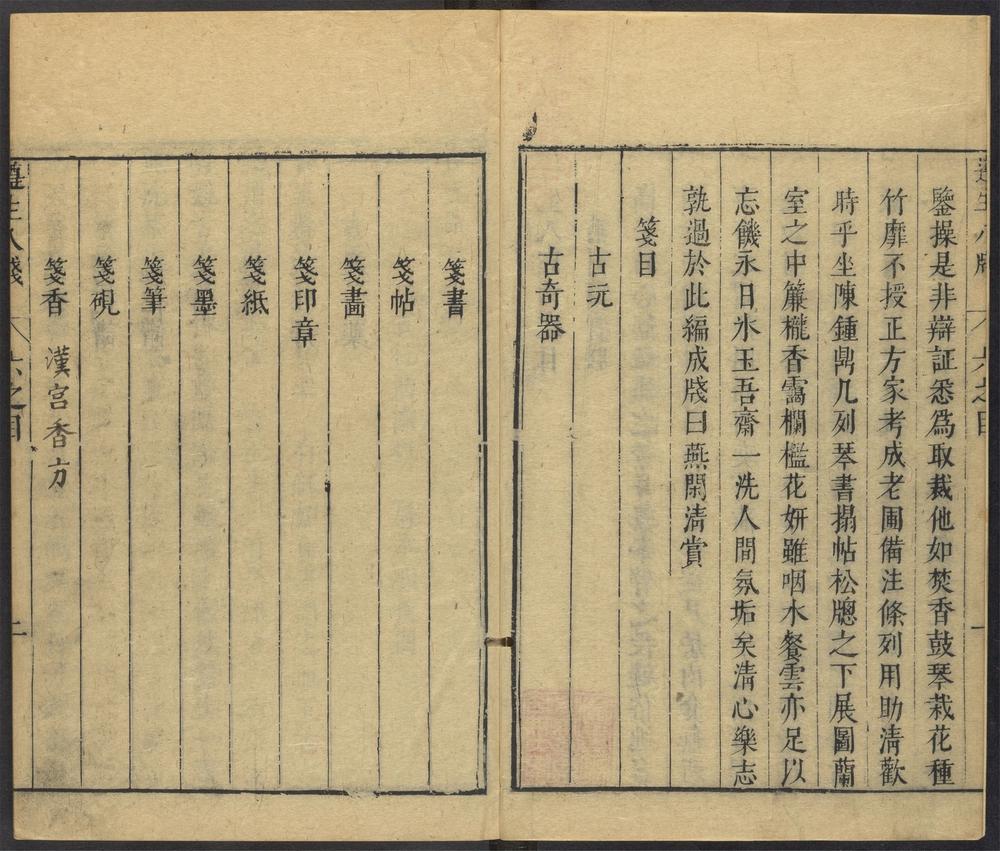 鑒操是非辯証悉爲取裁他如焚香鼓琴栽花種
竹靡不授正方家考成老圃備注條列用助清歡
時乎坐陳鍾鼎几列琴書搨帖松牕之下展圖蘭
室之中簾櫳香靄欄檻花姸雖咽水餐雲亦足以
忘饑永日氷玉吾齋一洗人間氛垢矣清心樂志
孰過於此編成牋曰燕閒清賞
箋目
古玩
古奇器
箋書
箋帖
箋畵
箋印章
箋紙
箋墨
箋筆
箋硯
箋香 漢宮香方
遵生八牋 六之目 二